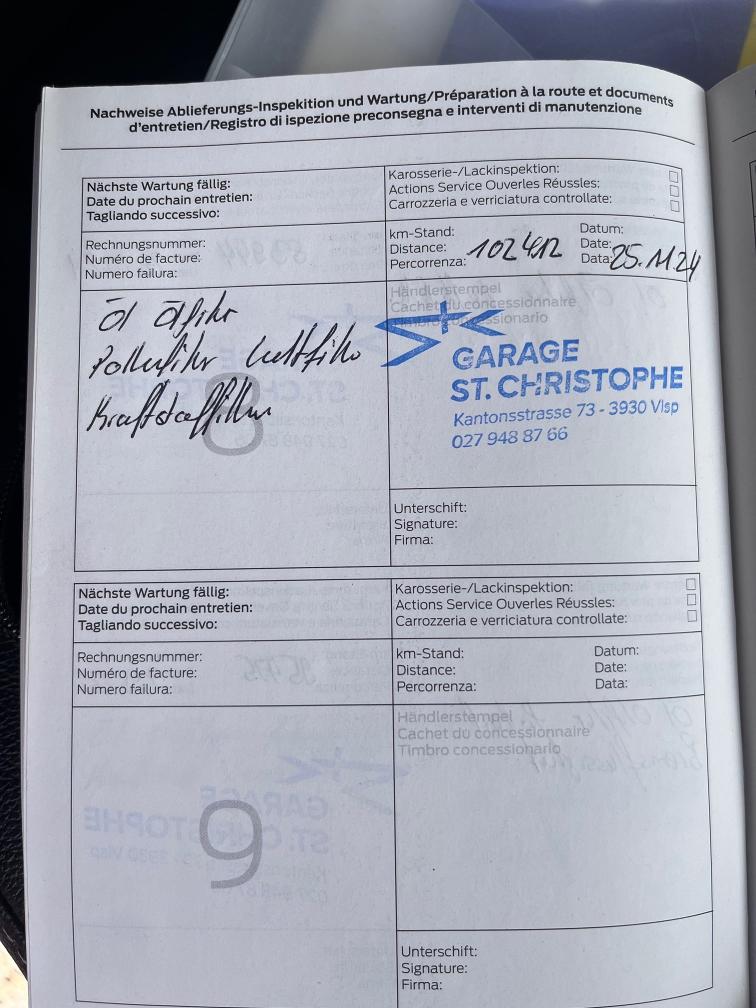 Nachweise Ablieferungs-Inspekition und Wartung/Préparation à la route et documents
d'entretien/Registro di ispezione preconsegna e interventi di manutenzione
Nächste Wartung fällig:
Date du prochain entretien:
Tagliando successivo:
Karosserie-/Lackinspektion:
Actions Service Ouverles Réussles:
Carrozzeria e verriciatura controllate:
Rechnungsnummer:
Numéro de facture:
Numero failura:
km-Stand:
Distance:
Percorrenza:
102412
Datum:
Date:
Data:
25.11.24
Öl Ölfilter
Pollenfilter Luftfilter
Kraftstofffilter
8
Händlerstempel
Cachet du concessionnaire
Timbro concessionario
Stc
GARAGE
ST. CHRISTOPHE
Kantonsstrasse 73 - 3930 Visp
027 948 87 66
Unterschift:
Signature:
Firma:
Nächste Wartung fällig:
Date du prochain entretien:
Tagliando successivo:
Karosserie-/Lackinspektion:
Actions Service Ouverles Réussles:
Carrozzeria e verriciatura controllate:
Rechnungsnummer:
Numéro de facture:
Numero failura:
km-Stand:
Distance:
Percorrenza:
Datum:
Date:
Data:
9
Händlerstempel
Cachet du concessionnaire
Timbro concessionario
Unterschift:
Signature:
Firma: